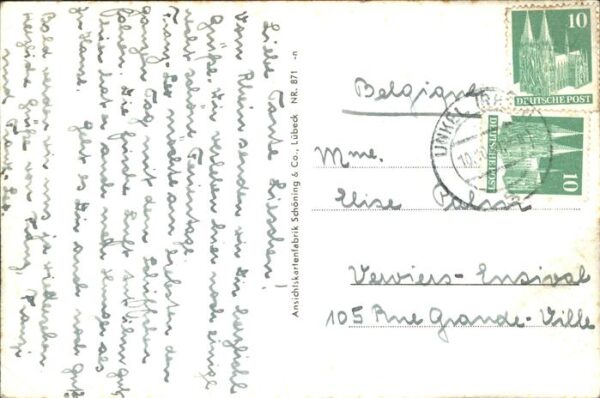 Liebe Tante Lieschen!
Vom Rhein senden wir Dir herzliche
Grüße. Wir verleben hier noch einige
recht schöne Ferientage.
möchte am liebsten den
ganzen Tag mit dem Schiffchen
fahren. Die frische Luft tut ihm gut,
hier hat er auch mehr Hunger als
zu Hause. Geht es Dir auch noch gut?
Bald werden wir uns ja wiedersehen
Herzliche Grüße von
und
Ansichtskartenfabrik Schöning & Co., Lübeck NR. 871 -n
10
DEUTSCHE POST
10
DEUTSCHE POST
UNKEL (RHEIN)
Belgique
Mme.
Elise Palm
Verviers-Ensival
105 Rue Grande-Ville